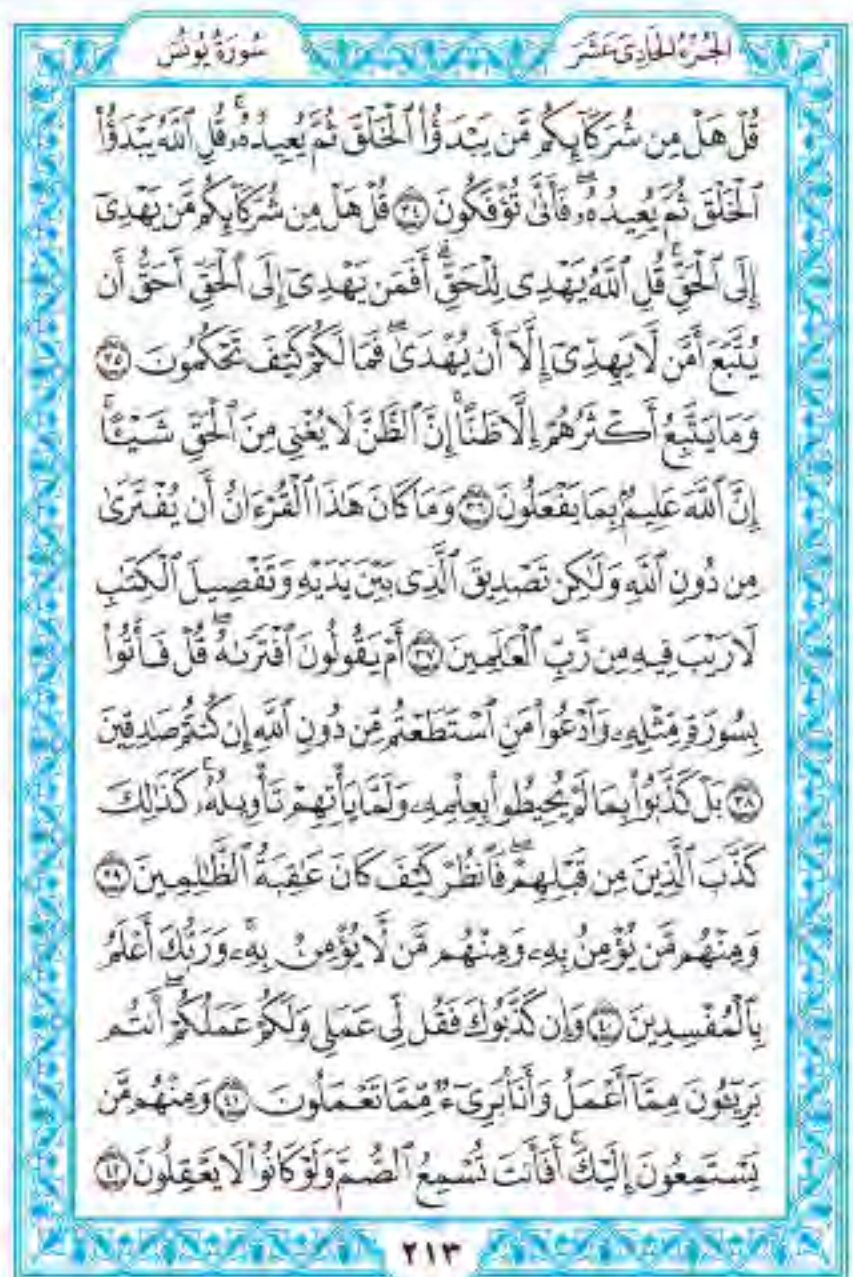 الجُزْءُ الحَادِي عَشَرَ
سُورَةُ يُونُسَ
قُلْ هَلْ مِن شُرَكَآئِكُم مَّن يَبْدَؤُا۟ ٱلْخَلْقَ ثُمَّ يُعِيدُهُۥۚ قُلِ ٱللَّهُ يَبْدَؤُا۟
ٱلْخَلْقَ ثُمَّ يُعِيدُهُۥۖ فَأَنَّىٰ تُؤْفَكُونَ ٣٤ قُلْ هَلْ مِن شُرَكَآئِكُم مَّن يَهْدِىٓ
إِلَى ٱلْحَقِّۚ قُلِ ٱللَّهُ يَهْدِى لِلْحَقِّۗ أَفَمَن يَهْدِىٓ إِلَى ٱلْحَقِّ أَحَقُّ أَن
يُتَّبَعَ أَمَّن لَّا يَهِدِّىٓ إِلَّآ أَن يُهْدَىٰۖ فَمَا لَكُمْ كَيْفَ تَحْكُمُونَ ٣٥
وَمَا يَتَّبِعُ أَكْثَرُهُمْ إِلَّا ظَنًّاۚ إِنَّ ٱلظَّنَّ لَا يُغْنِى مِنَ ٱلْحَقِّ شَيْـًٔاۚ
إِنَّ ٱللَّهَ عَلِيمٌۢ بِمَا يَفْعَلُونَ ٣٦ وَمَا كَانَ هَٰذَا ٱلْقُرْءَانُ أَن يُفْتَرَىٰ
مِن دُونِ ٱللَّهِ وَلَٰكِن تَصْدِيقَ ٱلَّذِى بَيْنَ يَدَيْهِ وَتَفْصِيلَ ٱلْكِتَٰبِ
لَا رَيْبَ فِيهِ مِن رَّبِّ ٱلْعَٰلَمِينَ ٣٧ أَمْ يَقُولُونَ ٱفْتَرَىٰهُۖ قُلْ فَأْتُوا۟
بِسُورَةٍ مِّثْلِهِۦ وَٱدْعُوا۟ مَنِ ٱسْتَطَعْتُم مِّن دُونِ ٱللَّهِ إِن كُنتُمْ صَٰدِقِينَ
٣٨ بَلْ كَذَّبُوا۟ بِمَا لَمْ يُحِيطُوا۟ بِعِلْمِهِۦ وَلَمَّا يَأْتِهِمْ تَأْوِيلُهُۥۚ كَذَٰلِكَ
كَذَّبَ ٱلَّذِينَ مِن قَبْلِهِمْۖ فَٱنظُرْ كَيْفَ كَانَ عَٰقِبَةُ ٱلظَّٰلِمِينَ ٣٩
وَمِنْهُم مَّن يُؤْمِنُ بِهِۦ وَمِنْهُم مَّن لَّا يُؤْمِنُ بِهِۦۚ وَرَبُّكَ أَعْلَمُ
بِٱلْمُفْسِدِينَ ٤٠ وَإِن كَذَّبُوكَ فَقُل لِّى عَمَلِى وَلَكُمْ عَمَلُكُمْۖ أَنتُم
بَرِيٓـُٔونَ مِمَّآ أَعْمَلُ وَأَنَا۠ بَرِىٓءٌ مِّمَّا تَعْمَلُونَ ٤١ وَمِنْهُم مَّن
يَسْتَمِعُونَ إِلَيْكَۚ أَفَأَنتَ تُسْمِعُ ٱلصُّمَّ وَلَوْ كَانُوا۟ لَا يَعْقِلُونَ ٤٢
٢١٣